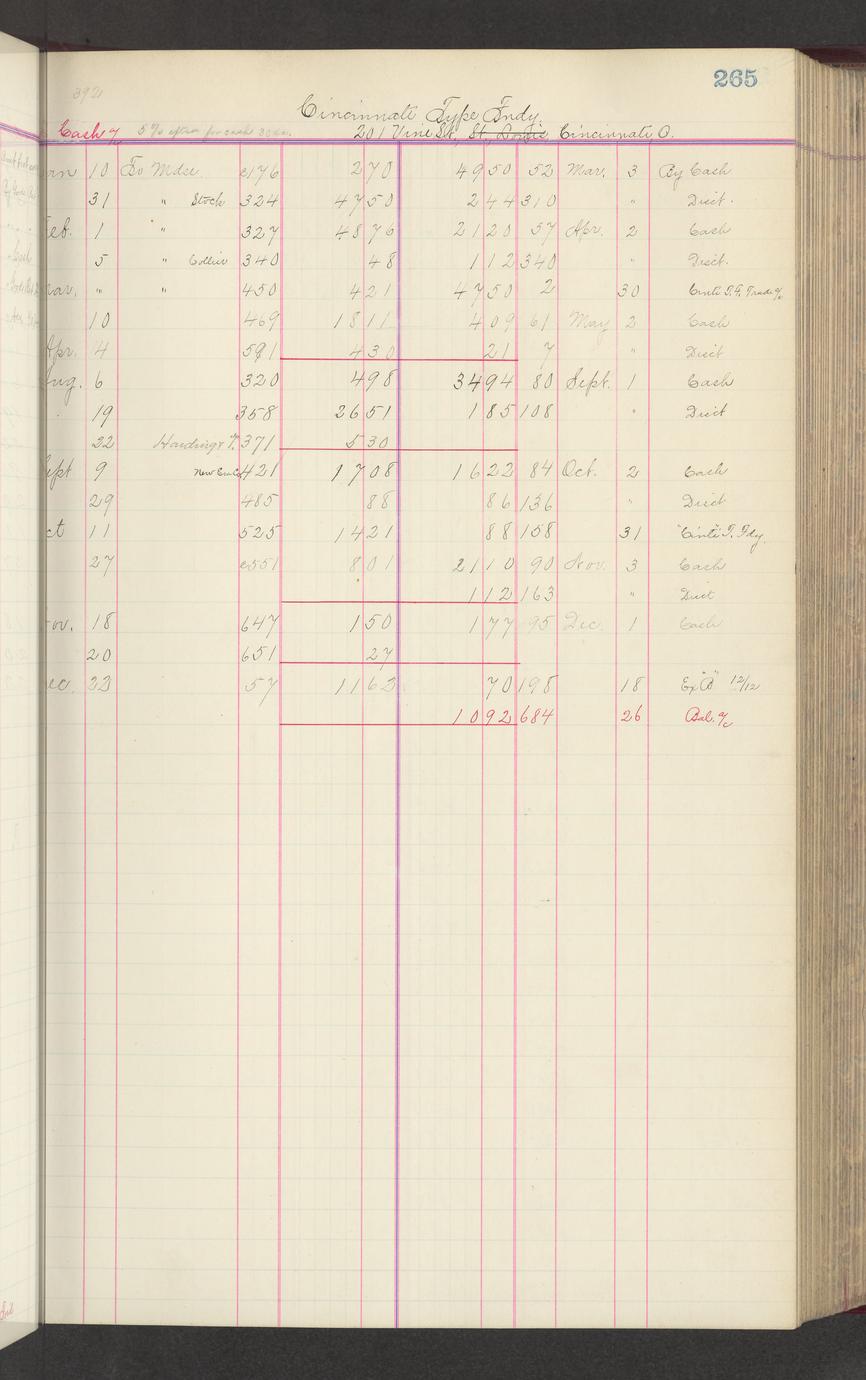 265
3921
Cincinnati Type Fndy.
Cash % 5% after for cash 30 ds. 201 Vine St., St. Louis Cincinnati, O.
an 10 To Mdse. c176 2 70 49 50 52 Mar. 3 By Cash
31 " Stock 324 47 50 2 44 310 " Disct.
eb. 1 " 327 48 76 21 20 57 Apr. 2 Cash
5 " Collier 340 48 1 12 340 " Disct.
ar. " " 450 4 21 47 50 2 30 Cinti T. F. Trade %
10 469 18 11 4 09 61 May 2 Cash
Apr. 4 591 4 30 21 7 " Disct
ug. 6 320 4 98 34 94 80 Sept. 1 Cash
19 358 26 51 1 85 108 " Disct
22 Harding & 371 5 30
ept 9 New Era Co 421 17 08 16 22 84 Oct. 2 Cash
29 485 88 86 136 " Disct
ct 11 525 14 21 88 158 31 "Cinti" T. Fdy.
27 c551 8 01 21 10 90 Nov. 3 Cash
1 12 163 " Disct
ov. 18 647 1 50 1 77 95 Dec. 1 Cash
20 651 27
ec. 23 57 11 62 70 198 18 Ex "B" 12/12
10 92 684 26 Bal. %